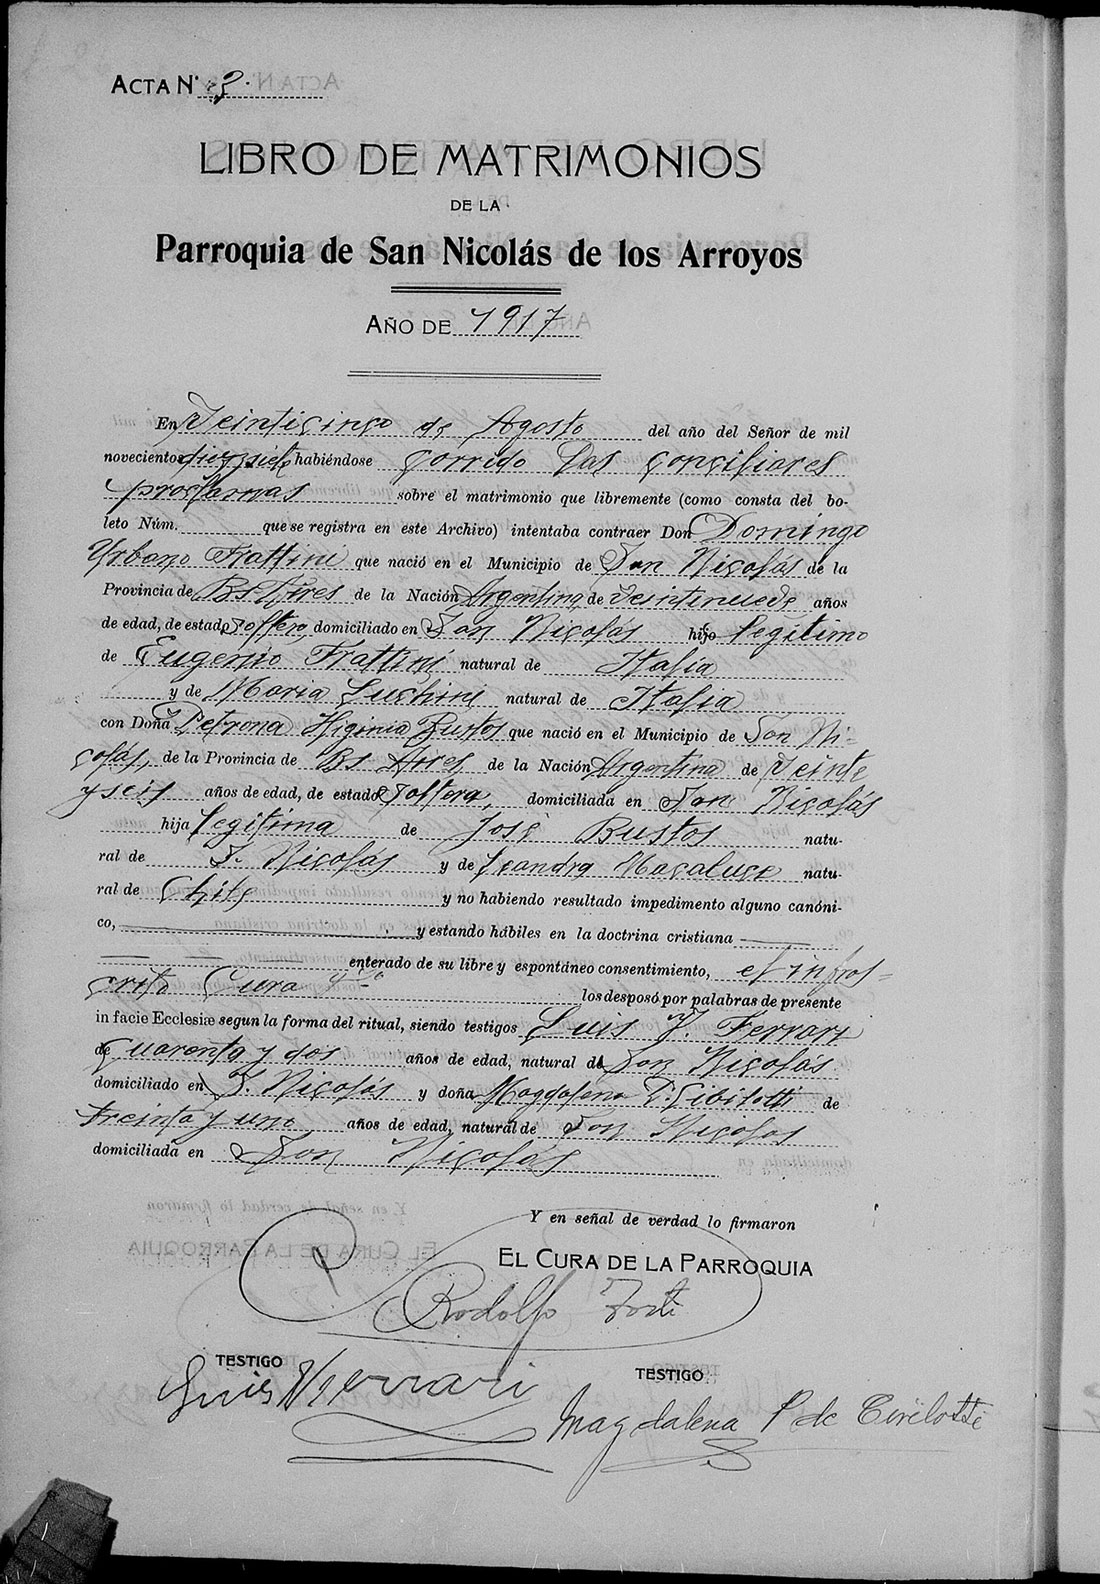 ACTA N.º 3.
LIBRO DE MATRIMONIOS
DE LA
Parroquia de San Nicolás de los Arroyos
AÑO DE 1917
En Veinticinco de Agosto del año del Señor de mil
novecientos diezysiete habiéndose corrido las conciliares
proclamas sobre el matrimonio que libremente (como consta del bo-
leto Núm. que se registra en este Archivo) intentaba contraer Don Domingo
Urbano Frattini que nació en el Municipio de San Nicolás de la
Provincia de Bs Aires de la Nación Argentina, de veintinueve años
de edad, de estado soltero, domiciliado en San Nicolás hijo legítimo
de Eugenio Frattini natural de Italia
y de Maria Luchini natural de Italia
con Doña Petrona Higinia Bustos que nació en el Municipio de San Ni-
colás, de la Provincia de Bs Aires, de la Nación Argentina de veinte
y seis años de edad, de estado soltera, domiciliada en San Nicolás
hija legítima de José Bustos natu-
ral de S. Nicolás y de Leandra Macaluse natu-
ral de Chile y no habiendo resultado impedimento alguno canóni-
co, y estando hábiles en la doctrina cristiana
enterado de su libre y espontáneo consentimiento, el infras-
crito Cura los desposó por palabras de presente
in facie Ecclesiæ segun la forma del ritual, siendo testigos Luis J. Ferrari
de cuarenta y dos años de edad, natural de San Nicolás
domiciliado en S. Nicolás y doña Magdalena P. Cibilotti de
treinta y uno años de edad, natural de San Nicolas
domiciliada en San Nicolás
Y en señal de verdad lo firmaron
EL CURA DE LA PARROQUIA
Rodolfo
TESTIGO TESTIGO
Luis J Ferrari
Magdalena P de Civilotti